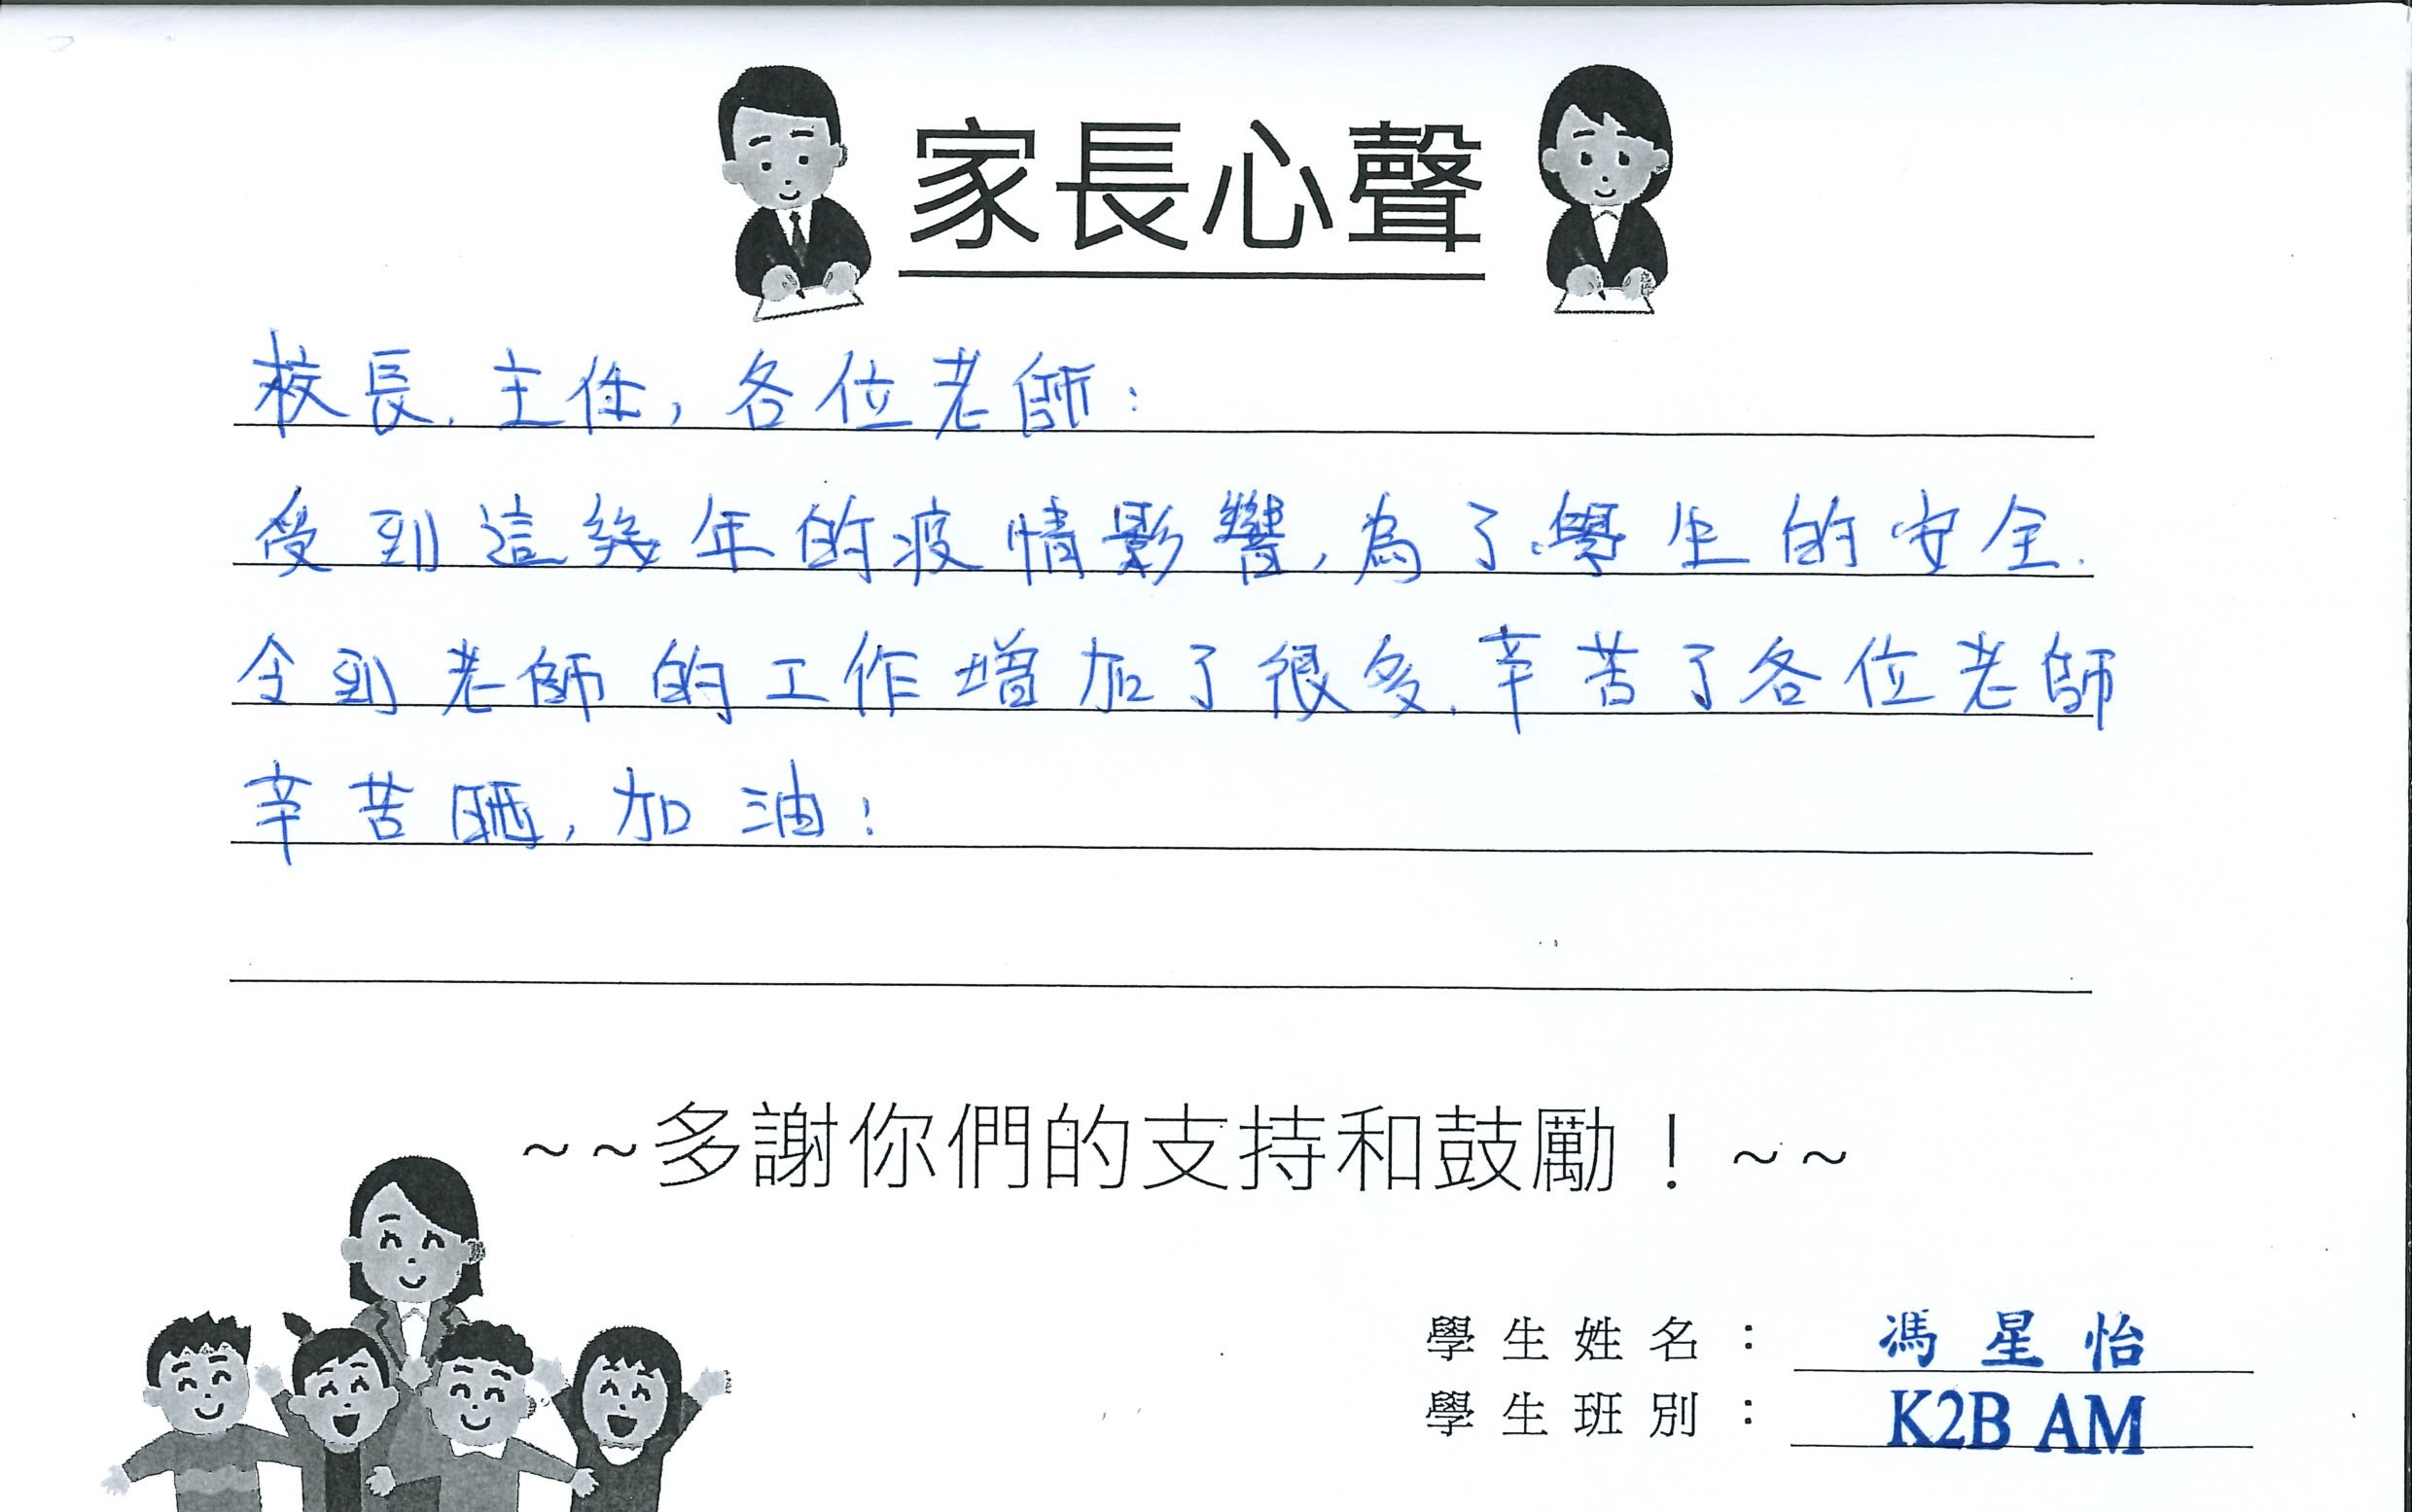 家長心聲
校長, 主任, 各位老師:
受到這幾年的疫情影響, 為了學生的安全.
令到老師的工作增加了很多. 辛苦了各位老師
辛苦晒, 加油!
~~多謝你們的支持和鼓勵!~~
學生姓名: 馮星怡
學生班別: K2B AM